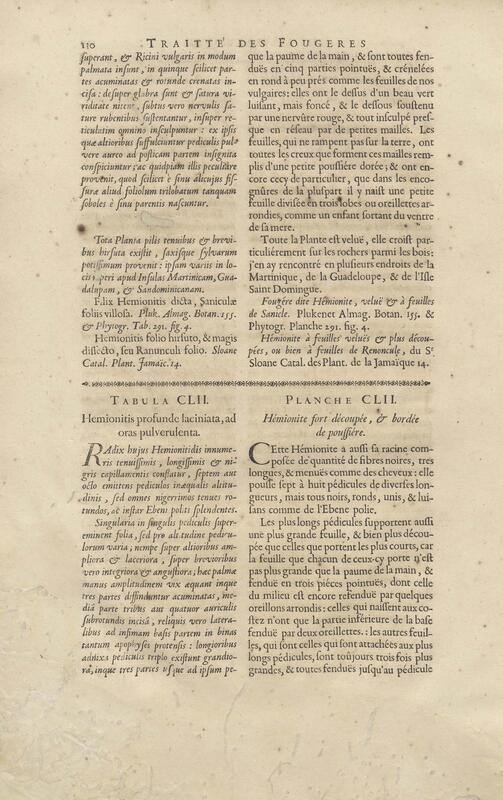 110 TRAITTÉ DES FOUGERES
superant, & Ricini vulgaris in modum
palmata insunt, in quinque scilicet par-
tes acuminatas & rotunde crenatas in-
cisa: desuper glabra sunt & satura vi-
riditate nitent, subtus vero nervulis sa-
ture rubentibus sustentantur, insuper re-
ticulatim omnino insculpuntur: ex ipsis
quæ altioribus suffulciuntur pediculis pul-
vere aureo ad posticam partem insignita
conspiciuntur; ac quidpiam illis peculiare
provenit, quod scilicet è sinu alicujus fis-
suræ aliud foliolum trilobatum tanquam
soboles è sinu parentis nascuntur.
Tota Planta pilis tenuibus & brevi-
bus hirsuta existit, saxisque sylvarum
potissimum provenit: ipsam variis in lo-
cis reperi apud Insulas Martinicam, Gua-
dalupam, & Sandominicanam.
Filix Hemionitis dicta, Saniculæ
foliis villosa. Pluk. Almag. Botan. 155.
& Phytogr. Tab. 291. fig. 4.
Hemionitis folio hirsuto, & magis
dissecto, seu Ranunculi folio. Sloane
Catal. Plant. Jamaic. 14.
TABULA CLII.
Hemionitis profunde laciniata, ad
oras pulverulenta.
RAdix hujus Hemionitidis innume-
ris tenuissimis, longissimis & ni-
gris capillamentis constatur, septem aut
octo emittens pediculos inæqualis altitu-
dinis, sed omnes nigerrimos tenues ro-
tundos, ac instar Ebeni politi splendentes.
Singularia in singulis pediculis super-
eminent folia, sed pro altitudine pedicu-
lorum varia; nempe super altioribus am-
pliora & laceriora, super brevioribus
vero integriora & angustiora; hæc palmæ
manus amplitudinem vix æquant inque
tres partes diffinduntur acuminatas, me-
diâ parte tribus aut quatuor auriculis
subrotundis incisâ, reliquis vero latera-
libus ad infimam basis partem in binas
tantum apophyses protensis: longioribus
adnixa pediculis triplo existunt grandio-
ra, inque tres partes usque ad ipsum pe-
que la paume de la main, & sont toutes fen-
duës en cinq parties pointuës, & crénelées
en rond à peu prés comme les feuilles de nos
vulgaires: elles ont le dessus d'un beau vert
luisant, mais foncé, & le dessous soustenu
par une nervûre rouge, & tout insculpé pres-
que en réseau par de petites mailles. Les
feuilles, qui ne rampent pas sur la terre, ont
toutes les creux que forment ces mailles rem-
plis d'une petite poussiére dorée; & ont en-
core cecy de particulier, que dans les enco-
gnûres de la pluspart il y naist une petite
feuille divisée en trois lobes ou oreillettes ar-
rondies, comme un enfant sortant du ventre
de sa mere.
Toute la Plante est veluë, elle croist par-
ticuliérement sur les rochers parmi les bois;
j'en ay rencontré en plusieurs endroits de la
Martinique, de la Guadeloupe, & de l'Isle
Saint Domingue.
Fougére dite Hémionite, veluë & à feuilles
de Sanicle. Plukenet Almag. Botan. 155. &
Phytogr. Planche 291. fig. 4.
Hémionite à feuilles veluës & plus décou-
pées, ou bien à feuilles de Renoncule, du Sr
Sloane Catal. des Plant. de la Jamaïque 14.
PLANCHE CLII.
Hémionite fort découpée, & bordée
de poussiére.
CEtte Hémionite a aussi sa racine com-
posée de quantité de fibres noires, tres
longues, & menuës comme des cheveux: elle
pousse sept à huit pédicules de diverses lon-
gueurs, mais tous noirs, ronds, unis, & lui-
sans comme de l'Ebene polie.
Les plus longs pédicules supportent aussi
une plus grande feuille, & bien plus décou-
pée que celles que portent les plus courts, car
la feuille que chacun de ceux-cy porte n'est
pas plus grande que la paume de la main, &
fenduë en trois piéces pointuës, dont celle
du milieu est encore refenduë par quelques
oreillons arrondis: celles qui naissent aux co-
stez n'ont que la partie inférieure de la base
fenduë par deux oreillettes: les autres feuil-
les, qui sont celles qui sont attachées aux plus
longs pédicules, sont toûjours trois fois plus
grandes, & toutes fenduës jusqu'au pédicule